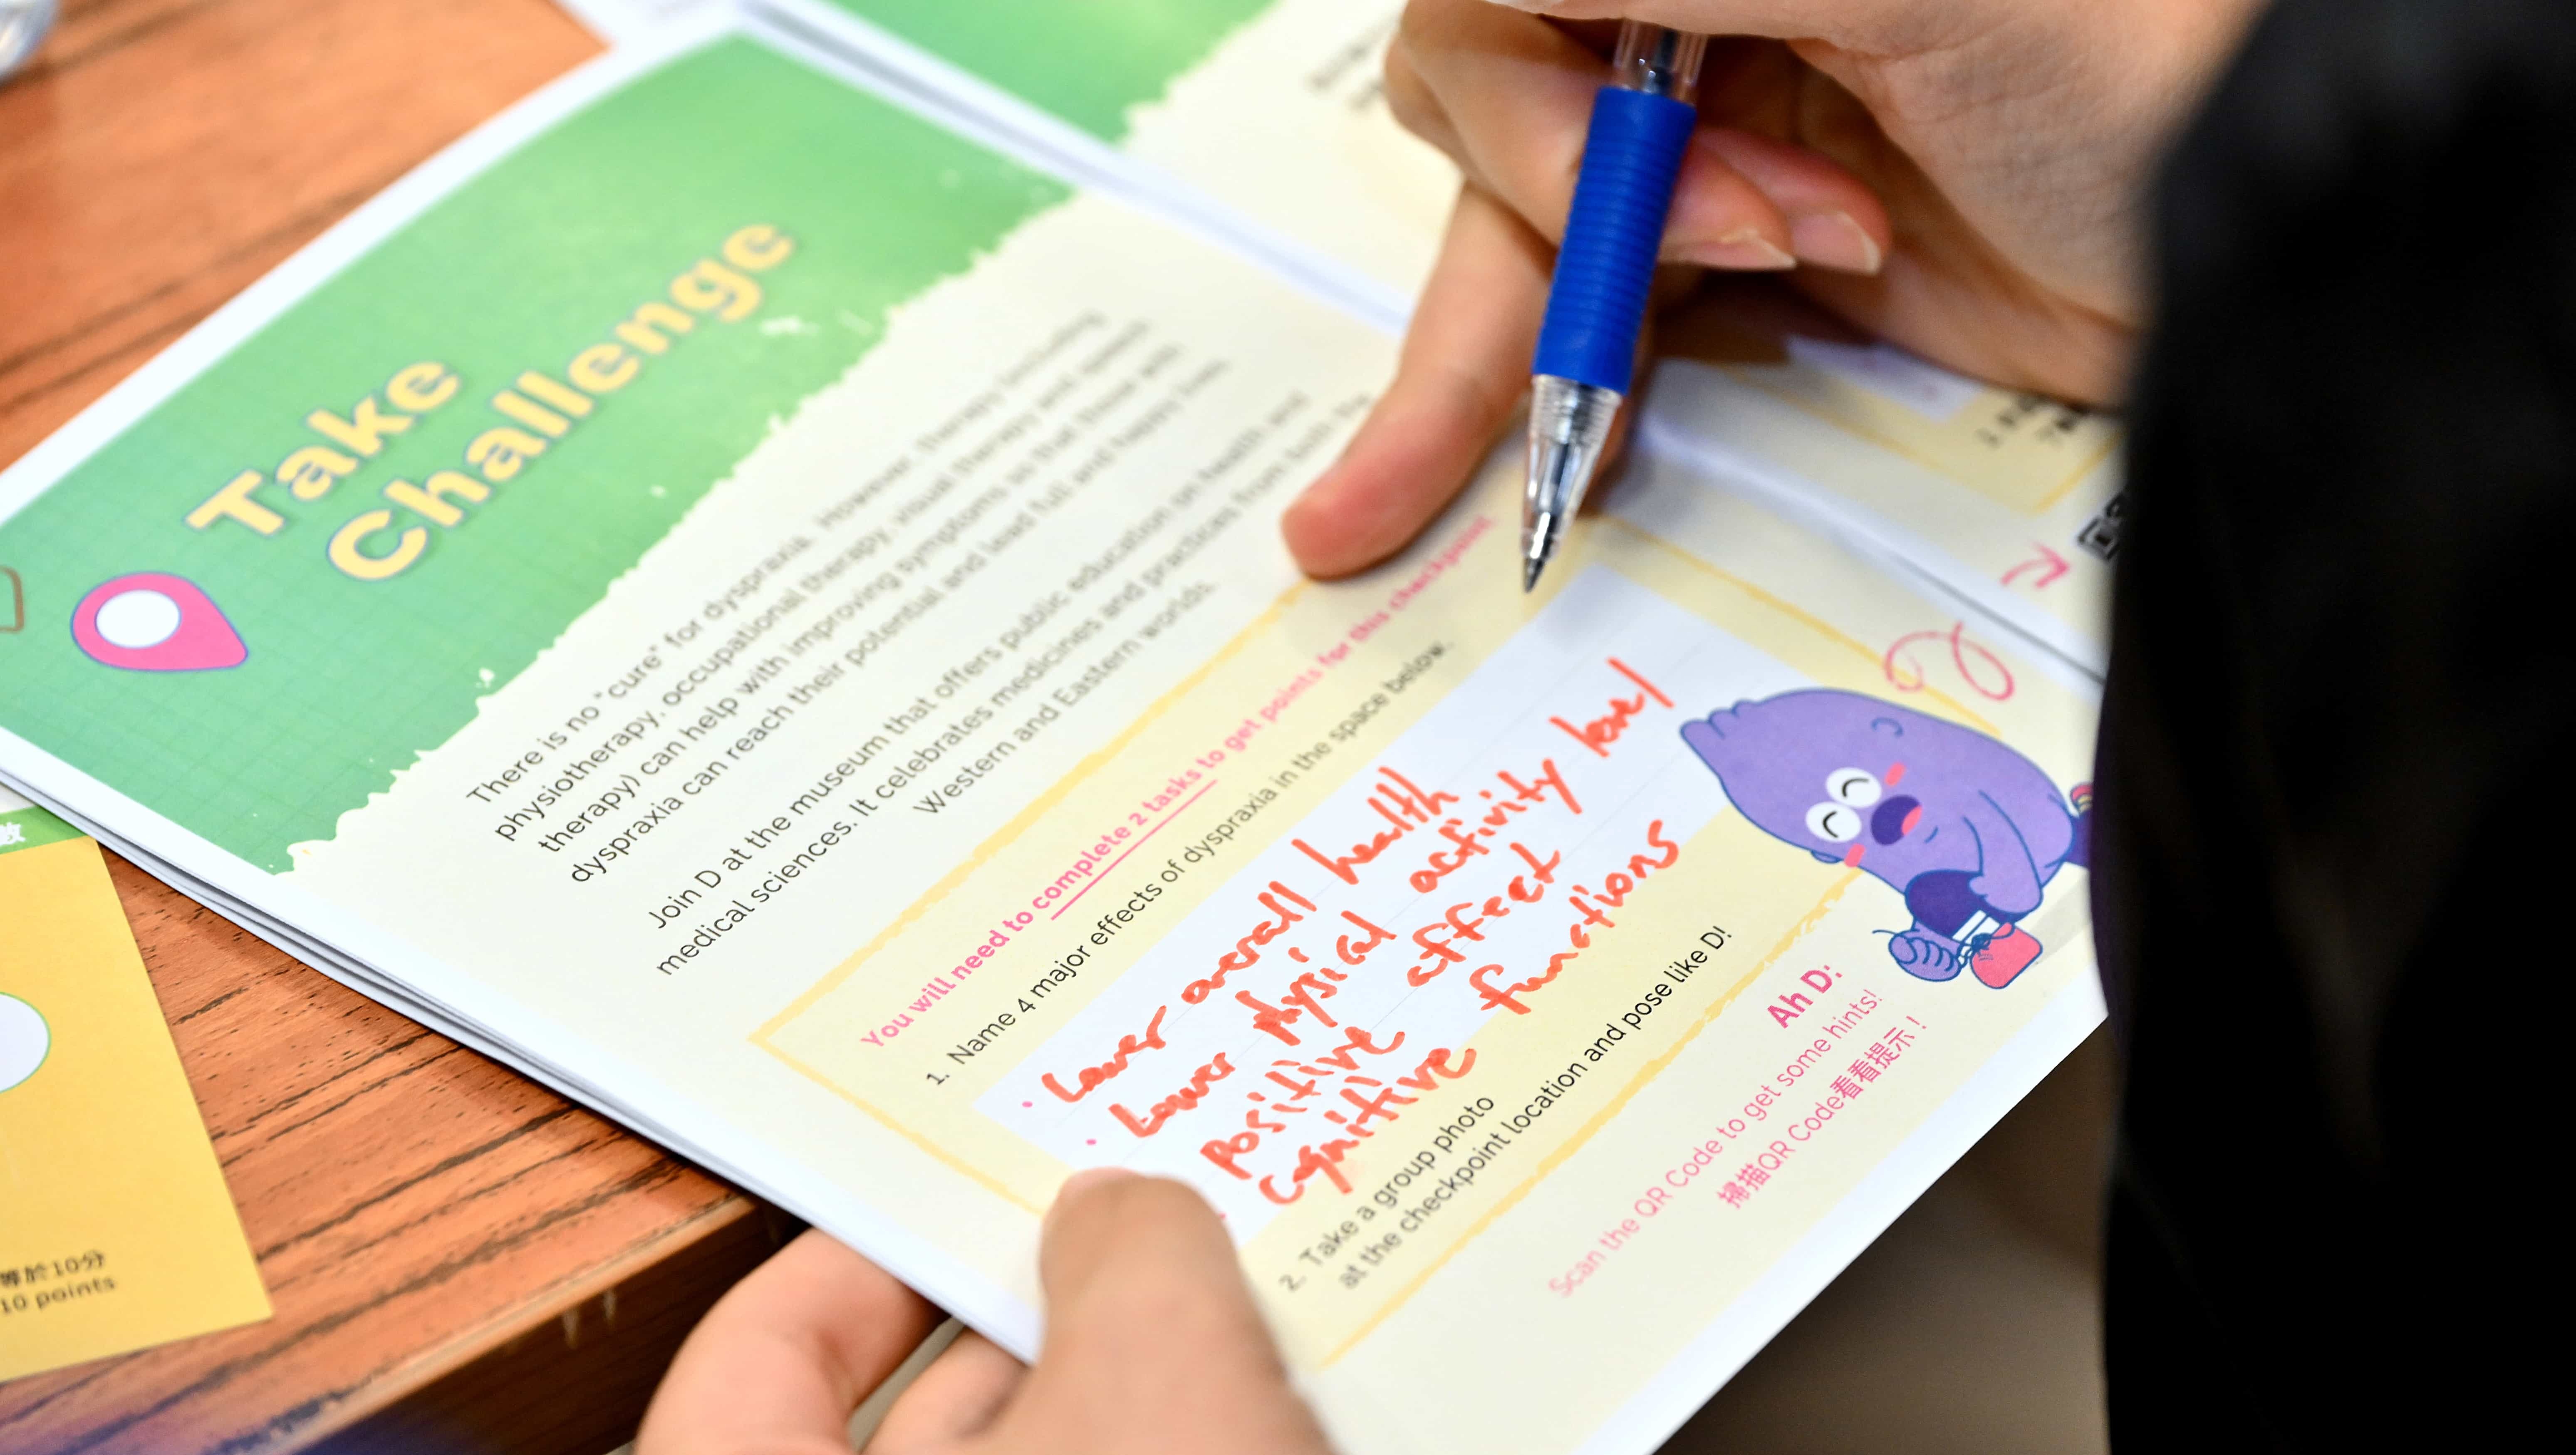 Take
Challenge
There is no "cure" for dyspraxia. However, therapy (including
physiotherapy, occupational therapy, visual therapy and speech
therapy) can help with improving symptoms so that those with
dyspraxia can reach their potential and lead full and happy lives.
Join D at the museum that offers public education on health and
medical sciences. It celebrates medicines and practices from both the
Western and Eastern worlds.
You will need to complete 2 tasks to get points for this checkpoint
1. Name 4 major effects of dyspraxia in the space below.
· Lower overall health
· Lower physical activity level
positive effect
cognitive functions
2. Take a group photo
at the checkpoint location and pose like D!
Ah D:
Scan the QR Code to get some hints!
掃描QR Code看看提示！
數
等於10分
10 points